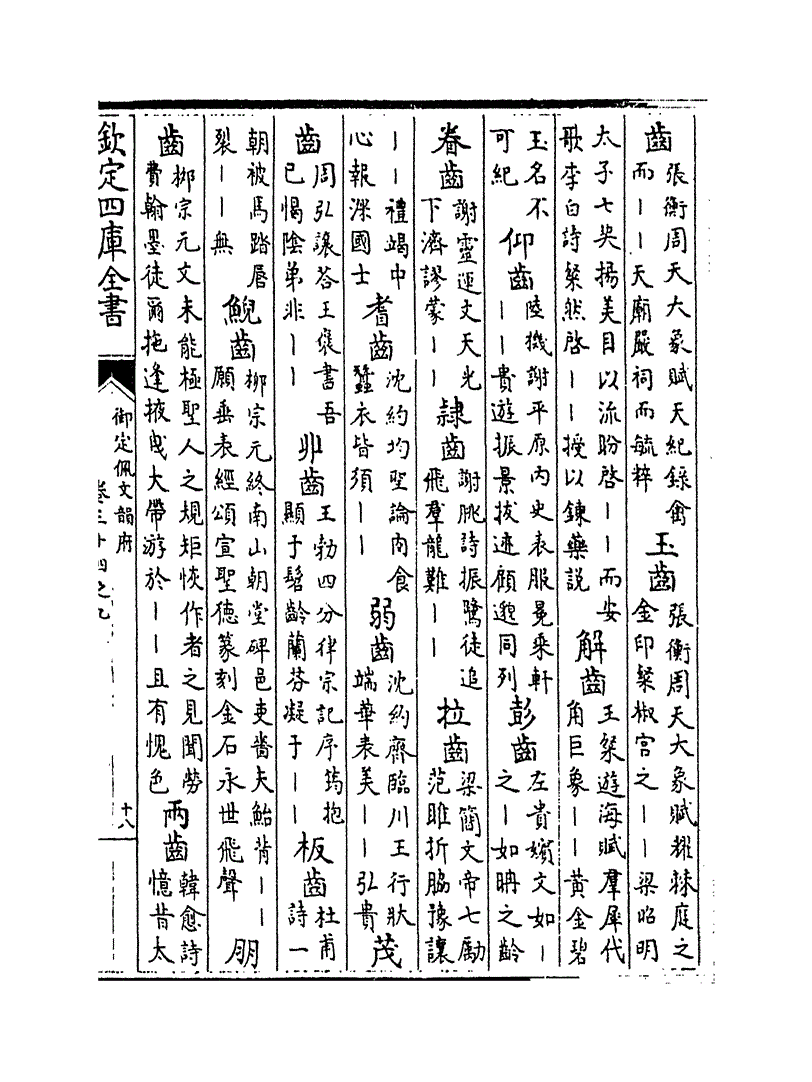 齒張衡周天大象賦天紀錄禽而丨丨天廟嚴祠而毓粹玉齒張衡周天大象賦耀棘庭之金印粲椒宮之丨丨梁昭明
太子七契揚美目以流盼啓丨丨而安歌李白詩粲然啓丨丨授以鍊藥説解齒王粲遊海賦羣犀代角巨象丨丨黃金碧
玉名不可紀仰齒陸機謝平原内史表服冕乘軒丨丨貴遊振景拔迹顧邈同列彭齒左貴嬪文如丨之丨如聃之齡
眷齒謝靈運文天光下濟謬蒙丨丨隷齒謝朓詩振鷺徒追飛羣龍難丨丨拉齒梁簡文帝七勵范雎折脇豫讓
丨丨禮竭中心報深國士耆齒沈約均聖論肉食蠶衣皆須丨丨弱齒沈約齊臨川王行狀端華表美丨丨弘貴茂
齒周弘讓答王褒書吾已愒陰弟非丨丨丱齒王勃四分律宗記序筠抱顯于髫齡蘭芬凝于丨丨板齒杜甫詩一
朝被馬踏唇裂丨丨無鯢齒柳宗元終南山朝堂碑邑吏嗇夫鮐背丨丨願垂表經頌宣聖德篆刻金石永世飛聲朋
齒柳宗元文未能極聖人之規矩恢作者之見聞勞費翰墨徒爾拖逢掖曳大帶游於丨丨且有愧色兩齒韓愈詩憶昔太
欽定四庫全書
御定佩文韻府
卷三十四之九
十八